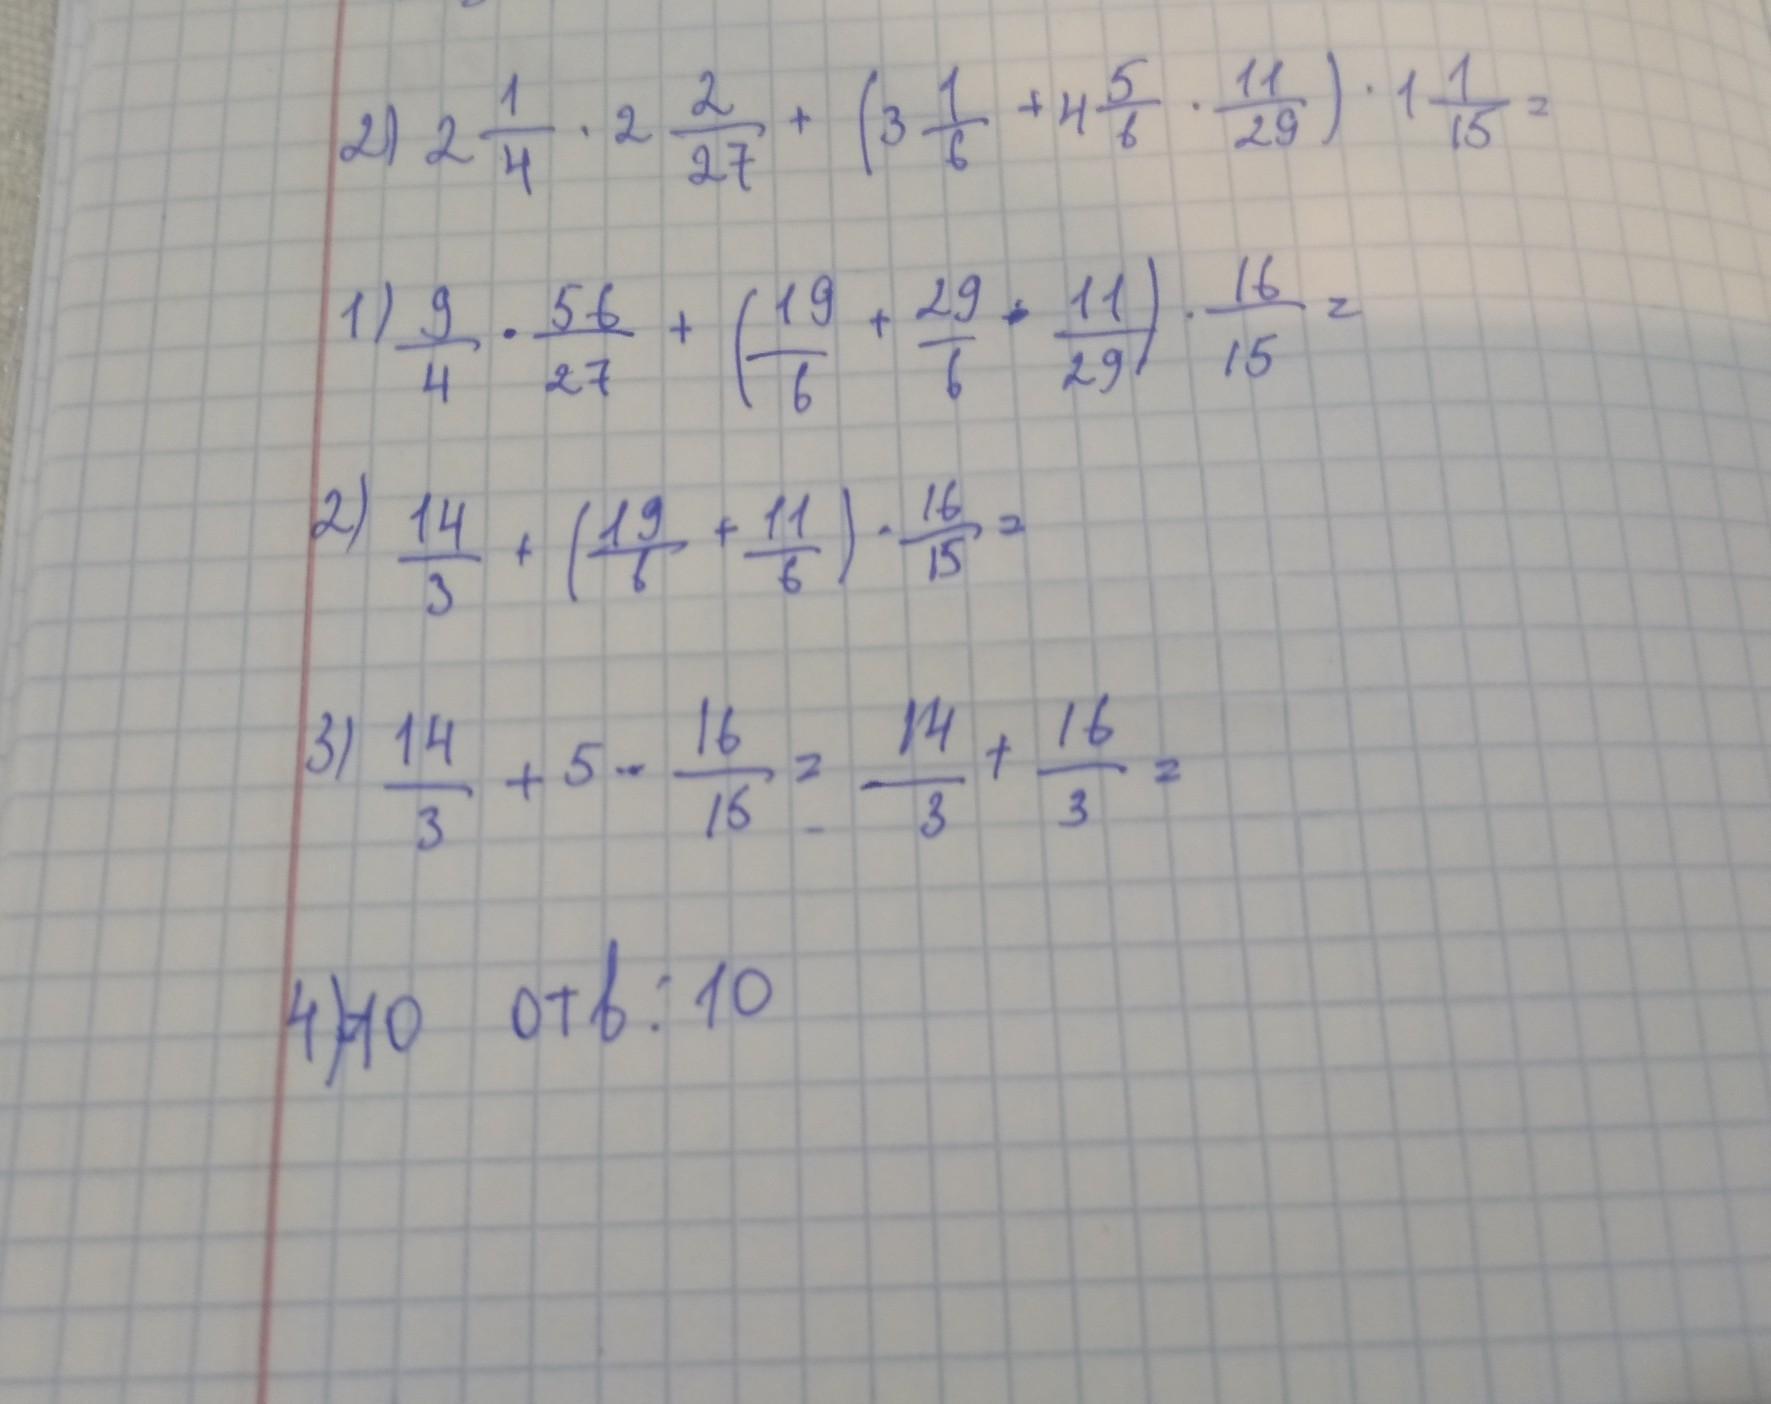 2) 2 1/4 · 2 2/27 + (3 1/6 + 4 5/6 · 11/29) · 1 1/15 =
1) 9/4 · 56/27 + (19/6 + 29/6 · 11/29) · 16/15 =
2) 14/3 + (19/6 + 11/6) · 16/15 =
3) 14/3 + 5 · 16/15 = 14/3 + 16/3 =
4) 10 отв: 10